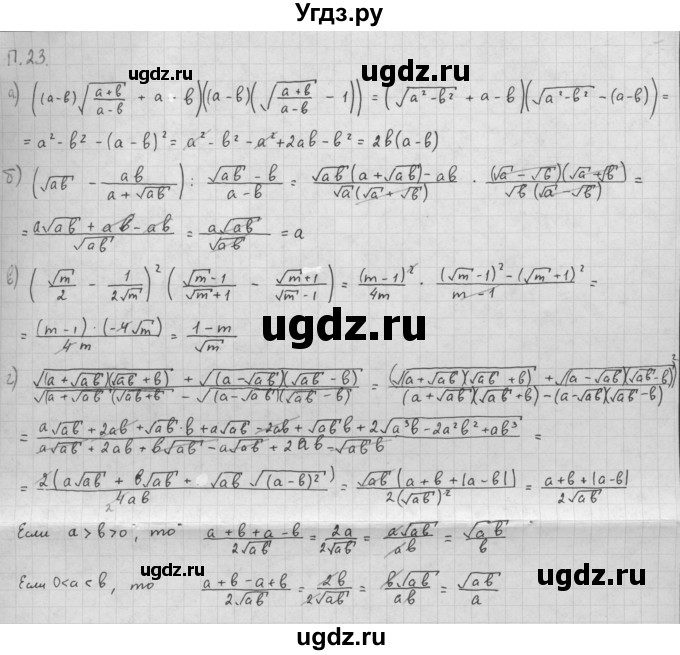 Угдз.ру
П.23.
а) ((a-b)√((a+b)/(a-b)) + a - b)((a-b)(√((a+b)/(a-b)) - 1)) = (√(a²-b²) + a-b)(√(a²-b²) -(a-b)) =
= a² - b² - (a-b)² = a² - b² - a² + 2ab - b² = 2b(a-b)
б) (√ab - ab/(a+√ab)) : (√ab - b)/(a-b) = (√ab(a+√ab) - ab)/(√a(√a+√b)) · ((√a-√b)(√a+√b))/(√b(√a-√b)) =
= (a√ab + ab - ab)/√ab = a√ab/√ab = a
в) (√m/2 - 1/(2√m))² ((√m-1)/(√m+1) - (√m+1)/(√m-1)) = (m-1)²/4m · ((√m-1)² - (√m+1)²)/(m-1) =
= ((m-1)·(-4√m))/4m = (1-m)/√m
г) (√((a+√ab)(√ab+b)) + √((a-√ab)(√ab-b)))/(√((a+√ab)(√ab+b)) - √((a-√ab)(√ab-b))) = (√((a+√ab)(√ab+b)) + √((a-√ab)(√ab-b)))²/((a+√ab)(√ab+b) - (a-√ab)(√ab-b))
= (a√ab + 2ab + √ab·b + a√ab - 2ab + √ab b + 2√(a³b - 2a²b² + ab³))/(a√ab + 2ab + b√ab - a√ab + 2ab - √ab b) =
= 2(a√ab + b√ab + √ab √((a-b)²))/4ab = √ab(a+b+|a-b|)/2(√ab)² = (a+b+|a-b|)/2√ab
Если a>b>0, то (a+b+a-b)/2√ab = 2a/2√ab = a√ab/ab = √ab/b
Если 0<a<b, то (a+b-a+b)/2√ab = 2b/2√ab = b√ab/ab = √ab/a
ugdz.ru
ugdz.ru
ugdz.ru
ugdz.ru
ugdz.ru
ugdz.ru
ugdz.ru
ugdz.ru
ugdz.ru
ugdz.ru
ugdz.ru
ugdz.ru